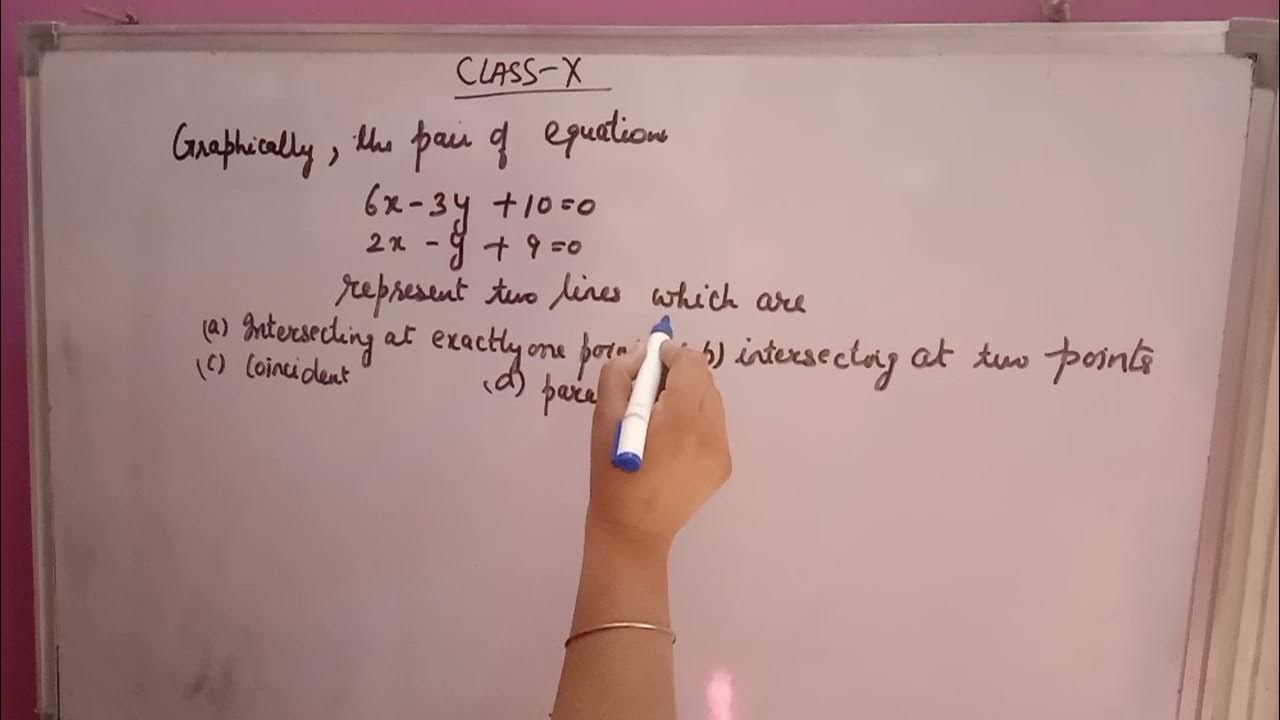 CLASS-X
Graphically, the pair of equations
6x - 3y + 10 = 0
2x - y + 9 = 0
represent two lines which are
(a) Intersecting at exactly one (b) intersecting at two points
(c) Coincident (d)